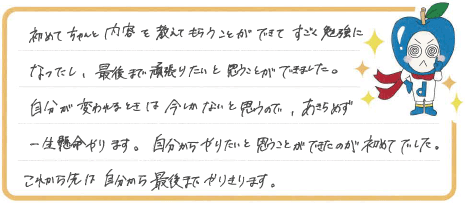 初めてちゃんと内容を教えてもらうことができてすごく勉強に
なったし、最後まで頑張りたいと思うことができました。
自分が変われるときは今しかないと思うので、あきらめず
一生懸命やります。自分からやりたいと思うことができたのが初めてでした。
これから先は自分から最後までやりきります。
d